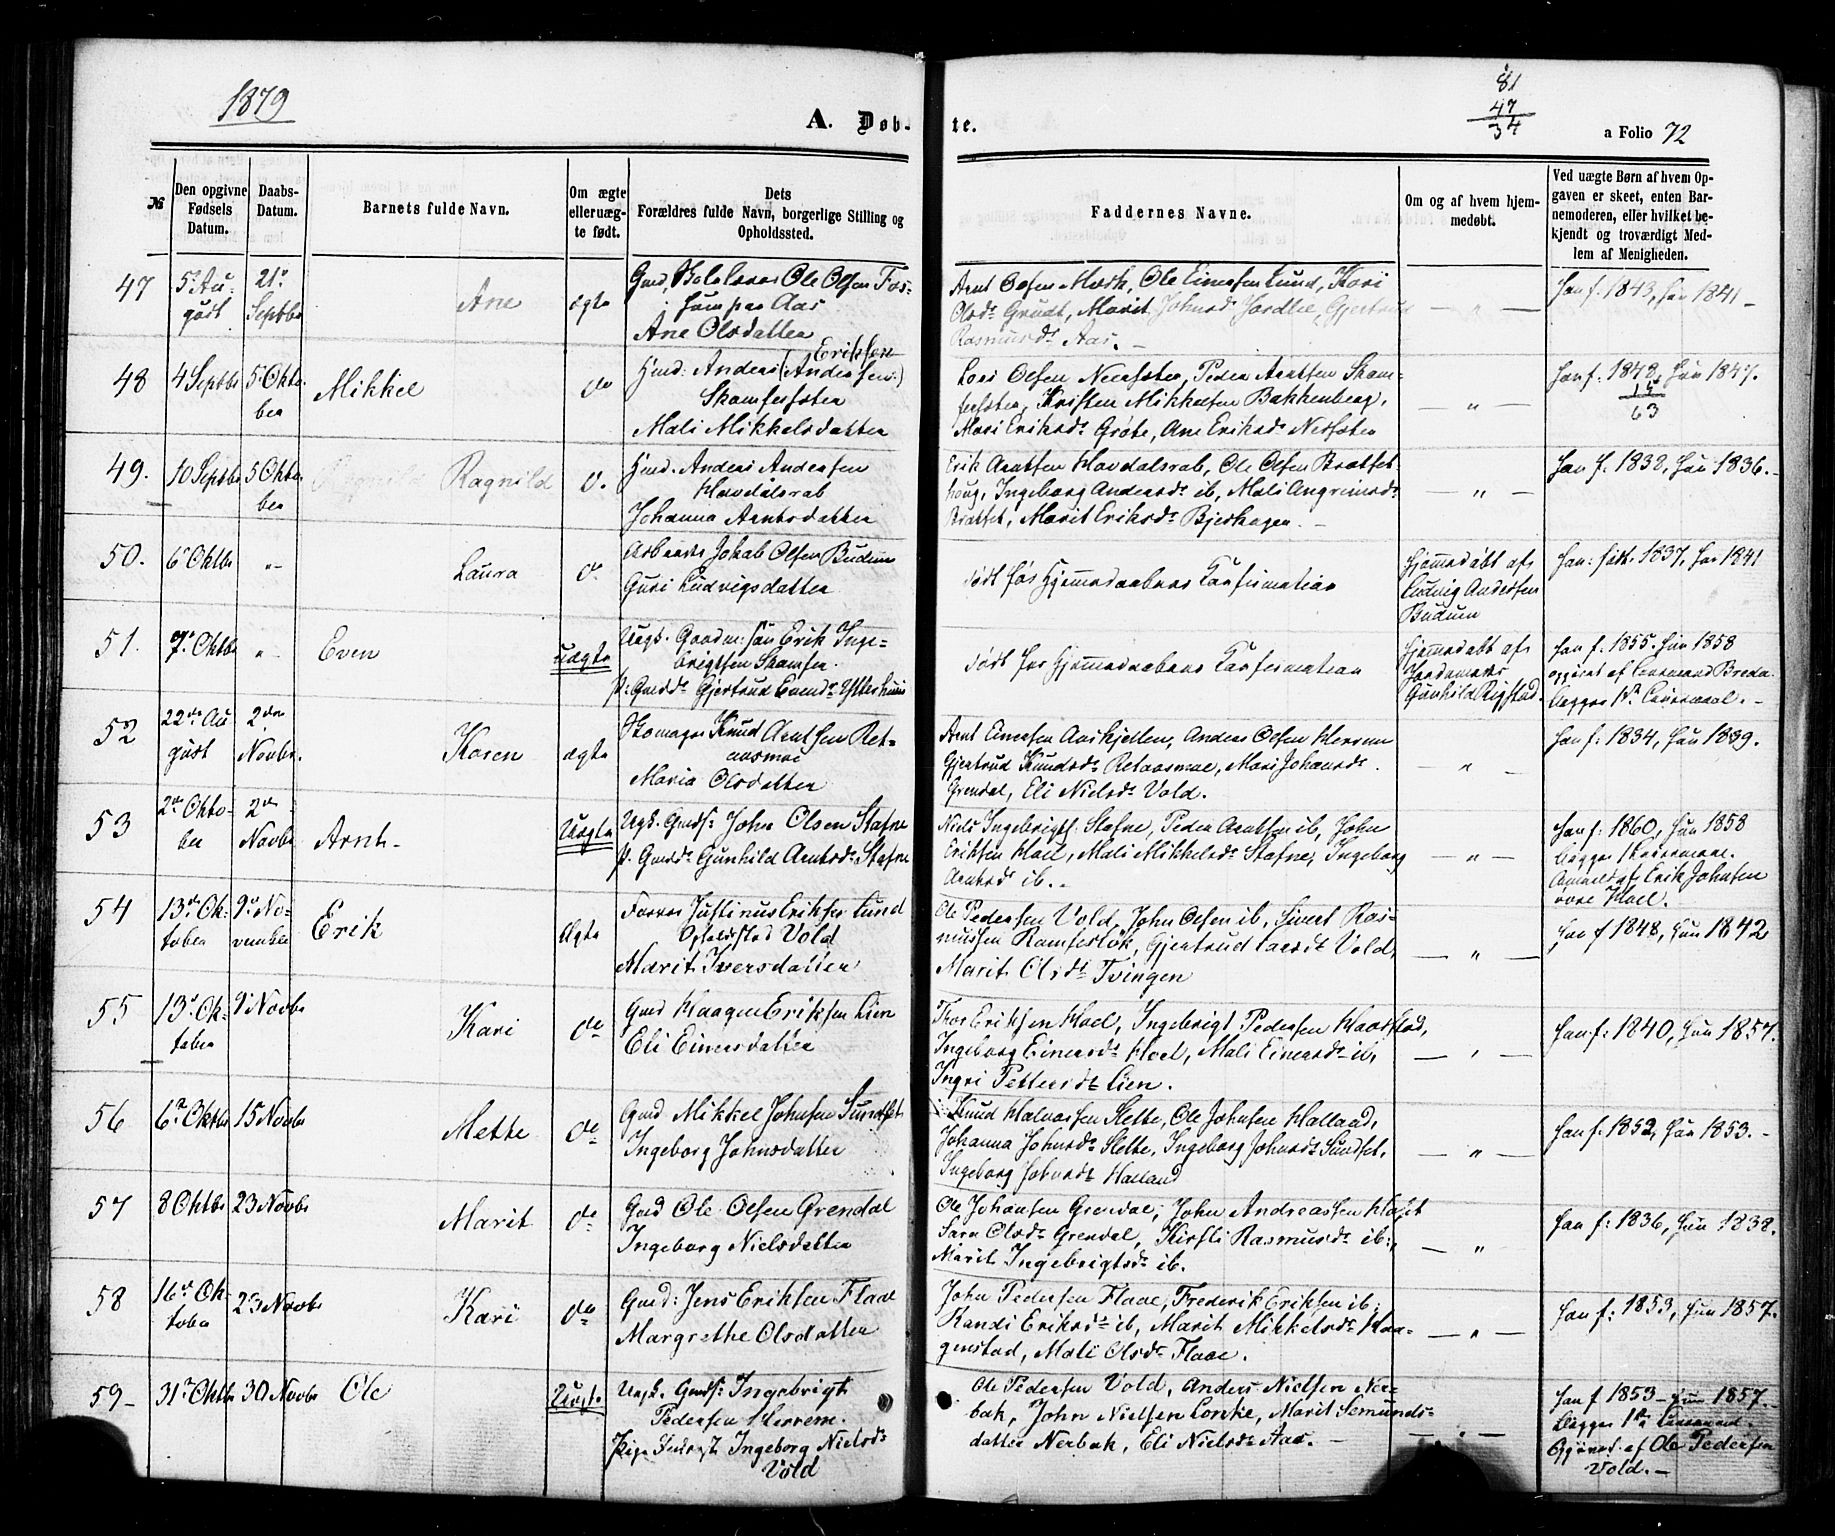 1879
A. Døb-
te.
81
47
34
a Folio 72
№
Den opgivne
Fødsels
Datum.
Daabs-
Datum.
Barnets fulde Navn.
Om ægte
eller uæg-
te født.
Dets
Forældres fulde Navn, borgerlige Stilling og
Opholdssted.
Faddernes Navne.
Om og af hvem hjem-
medøbt.
Ved uægte Børn af hvem Op-
gaven er skeet, enten Bar-
nemoderen, eller hvilket be-
kjendt og troværdigt Med-
lem af Menigheden.
47
5 Au-
gust
21
Septbr
Ane
ægte
Ole Olsen
paa Aas
Ane Olsdatter
Arnt Olsen Mærk, Ole Einersen Lund, Kari
Olsdr Grudt, Marit Johnsd Jordlie, Gjertrud
Rasmusdr Aas. –
— " —
han f. 1843, hun 1841 –
48
4 Septbr
5 Okto-
ber
Mikkel
do
Eriksen
Gmd: Anders (Andersen)
Skamfersæter
Mali Mikkelsdatter
Lars Olsen Nersæter, Peder Arntsen Skam-
fersæter, Kristen Mikkelsen Bakkenberg,
Mari Eriksdr Grøte, Ane Eriksdr Nersæter
— " —
han f. 1848, hun 1847.
15
63
49.
10 Septbr
5 Okto-
ber
Ragnild
Ragnild
do
Anders Andersen
Havdalsrab
Johanna Arntsdatter
Erik Arntsen Havdalsrab, Ole Olsen Bratset
houg, Ingeborg Andersdr ib, Mali Angrimsdr
Bratset, Marit Eriksdr Bjerhagen. –
— " —
han f. 1832, hun 1836. –
50.
6 Oktbr
" –
Laura
do
Jakob Olsen Budum
Guri Ludvigsdatter
død før Hjemmedaabens Konfirmation
Hjemmedøbt af
Ludvig Andersen
Budum
han: født. 1837, hun 1841
51.
7 Oktbr
"
Even
uægte
Ungk. Gaardm: søn Erik Inge-
brigtsen Skamfer.
P: Gmdd Gjertrud Evensdr Ytterhuus
død før Hjemmedaabens Konfirmation
Hjemmedøbt af
Jordemoder
Gunhild Rigstad.
han f. 1855. hun 1858
opgivet af Lensmand Breda
begges 1ste Leiermaal. –
52
22de Au-
gust
2den
Novbr.
Karen
ægte
Skomager Knud Arntsen Ret-
aasmoe
Maria Olsdatter
Arnt Einersen Aaskjellen, Anders Olsen Herrem
Gjertrud Knudsdr Retaasmoe, Mari Johansdr
Grendal, Eli Nielsdr Vold.
— " —
han f: 1834, hun 1839.
53
2den Okto-
ber
2den
Novbr
Arnt.
Uægte
Ugk. Gmds: John Olsen Stafne
P. Gmdd: Gunhild Arntsdr Stafne
Niels Ingebrigts: Stafne, Peder Arntsen ib, John
Eriksen Hoel, Mali Mikkelsdr Stafne, Ingeborg
Arntsdr ib. –
— " —
han f: 1860, hun 1858
begges 1 Leiermaal.
Anmeldt af Erik Johnsen
øvre Hoel.
54
13de Ok-
tober
9de No-
vember
Erik
Ægte
Justinus Eriksen Lund
Opholdsted Vold
Marit Iversdatter
Ole Pedersen Vold, John Olsen ib, Sivert Ras-
mussen Ramsesløk, Gjertrud Larsdr Vold,
Marit Olsdr Tvingen
— " —
han f 1848, hun 1842
55
13de Ok-
tober
9 Novbr
Kari
do
Gmd Haagen Eriksen Lien
Eli Einersdatter
Thor Eriksen Hoel, Ingebrigt Pedersen Haarstad,
Ingeborg Einersdr Hoel, Mali Einersdr ib,
Ingri Pettersdr Lien.
— " —
han f: 1840, hun 1857.
56
6te Oktbr
15 Novbr
Mette
do
Gmd Mikkel Johnsen Sundset
Ingeborg Johnsdatter
Knud Halvorsen Slette, Ole Johnsen Halland,
Johanna Johnsdr Slette, Ingeborg Johnsdr Sundset,
Ingeborg Johnsdr Halland
— " —
han f: 1852, hun 1853. –
57
8 Oktbr
23 Novbr
Marit
do
Gmd Ole Olsen Grendal
Ingeborg Nielsdatter
Ole Johansen Grendal, John Andreassen
Sara Olsdr Grendal, Kirsti Rasmusdr ib,
Marit Ingebrigtsdr ib.
— " —
han f: 1836, hun 1838.
58
16de Ok-
tober
23 Novbr
Kari
do
Gmd: Jens Eriksen Flaae
Margrethe Olsdatter
John Pedersen Flaae, Frederik Eriksen ib,
Randi Eriksdr ib, Marit Mikkelsdr Haa-
genstad, Mali Olsdr Flaae.
— " —
han f: 1853, hun 1857.
59 –
31te Oktbr
30 Novbr
Ole
Uægte
Ungk. Gmds: Ingebrigt
Pedersen Herrem.
Pige Inderst Ingeborg Nielsdr
Vold
Ole Pedersen Vold, Anders Nielsen Ner-
bak, John Nielsen Loreke, Marit Semunds-
datter Nerbak, Eli Nielsdr Aas. –
— " —
han f 1853 – hun 1857.
Begges 1ste Leiermaal
Opgivet af Ole Pedersen
Vold. –